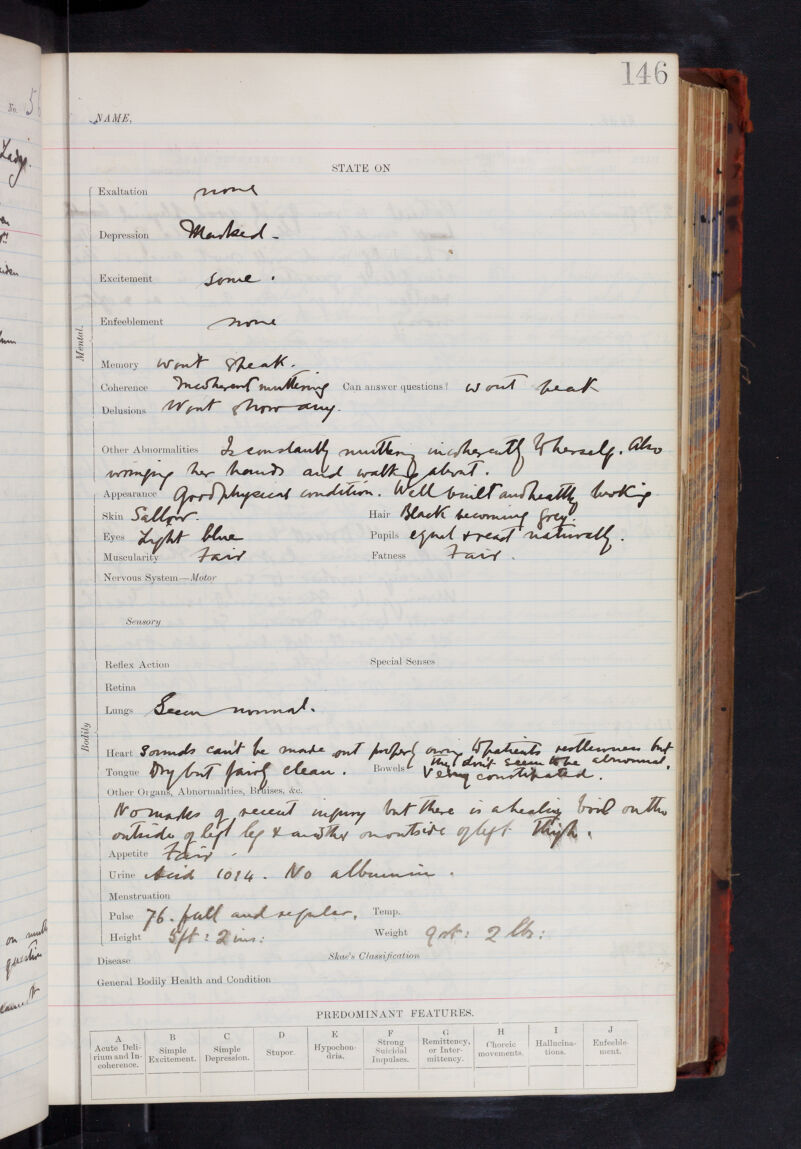 146
No. 5
NAME,
Lady.
STATE ON
Exaltation none
Depression Marked.
Excitement some.
Enfeeblement none
Mental.
Memory wont speak.
Coherence Incoherent muttering Can answer questions? wont speak
Delusions Wont show any.
Other Abnormalities Is constantly muttering incoherently to herself. Also
wringing her hands and walking about.
Appearance Good physical condition. Well built and healthy looking
Skin Sallow. Hair Black becoming grey
Eyes Light blue Pupils equal & react naturally.
Muscularity Fair Fatness Fair.
Nervous System—Motor
Sensory
Reflex Action Special Senses
Retina
Lungs Seem normal.
Bodily
Heart Sounds can't be made out properly owing to patients restlessness but
they don't seem to be abnormal.
Tongue Dry but fairly clean. Bowels Very constipated.
Other Organs, Abnormalities, Bruises, &c.
No marks of recent injury but there is a healing boil on the
outside of left leg & another on outside of left thigh.
Appetite Fair.
Urine Acid 1014. No albumin.
Menstruation
Pulse 76. full and regular. Temp.
Height 5ft: 2 ins: Weight 9 st: 2 lbs:
Disease Skae's Classification
General Bodily Health and Condition
PREDOMINANT FEATURES.
A B C D E F G H I J
Acute Delirium and Incoherence. Simple Excitement. Simple Depression. Stupor. Hypochondria. Strong Suicidal Impulses. Remittency, or Intermittency. Choreic movements. Hallucinations. Enfeeblement.